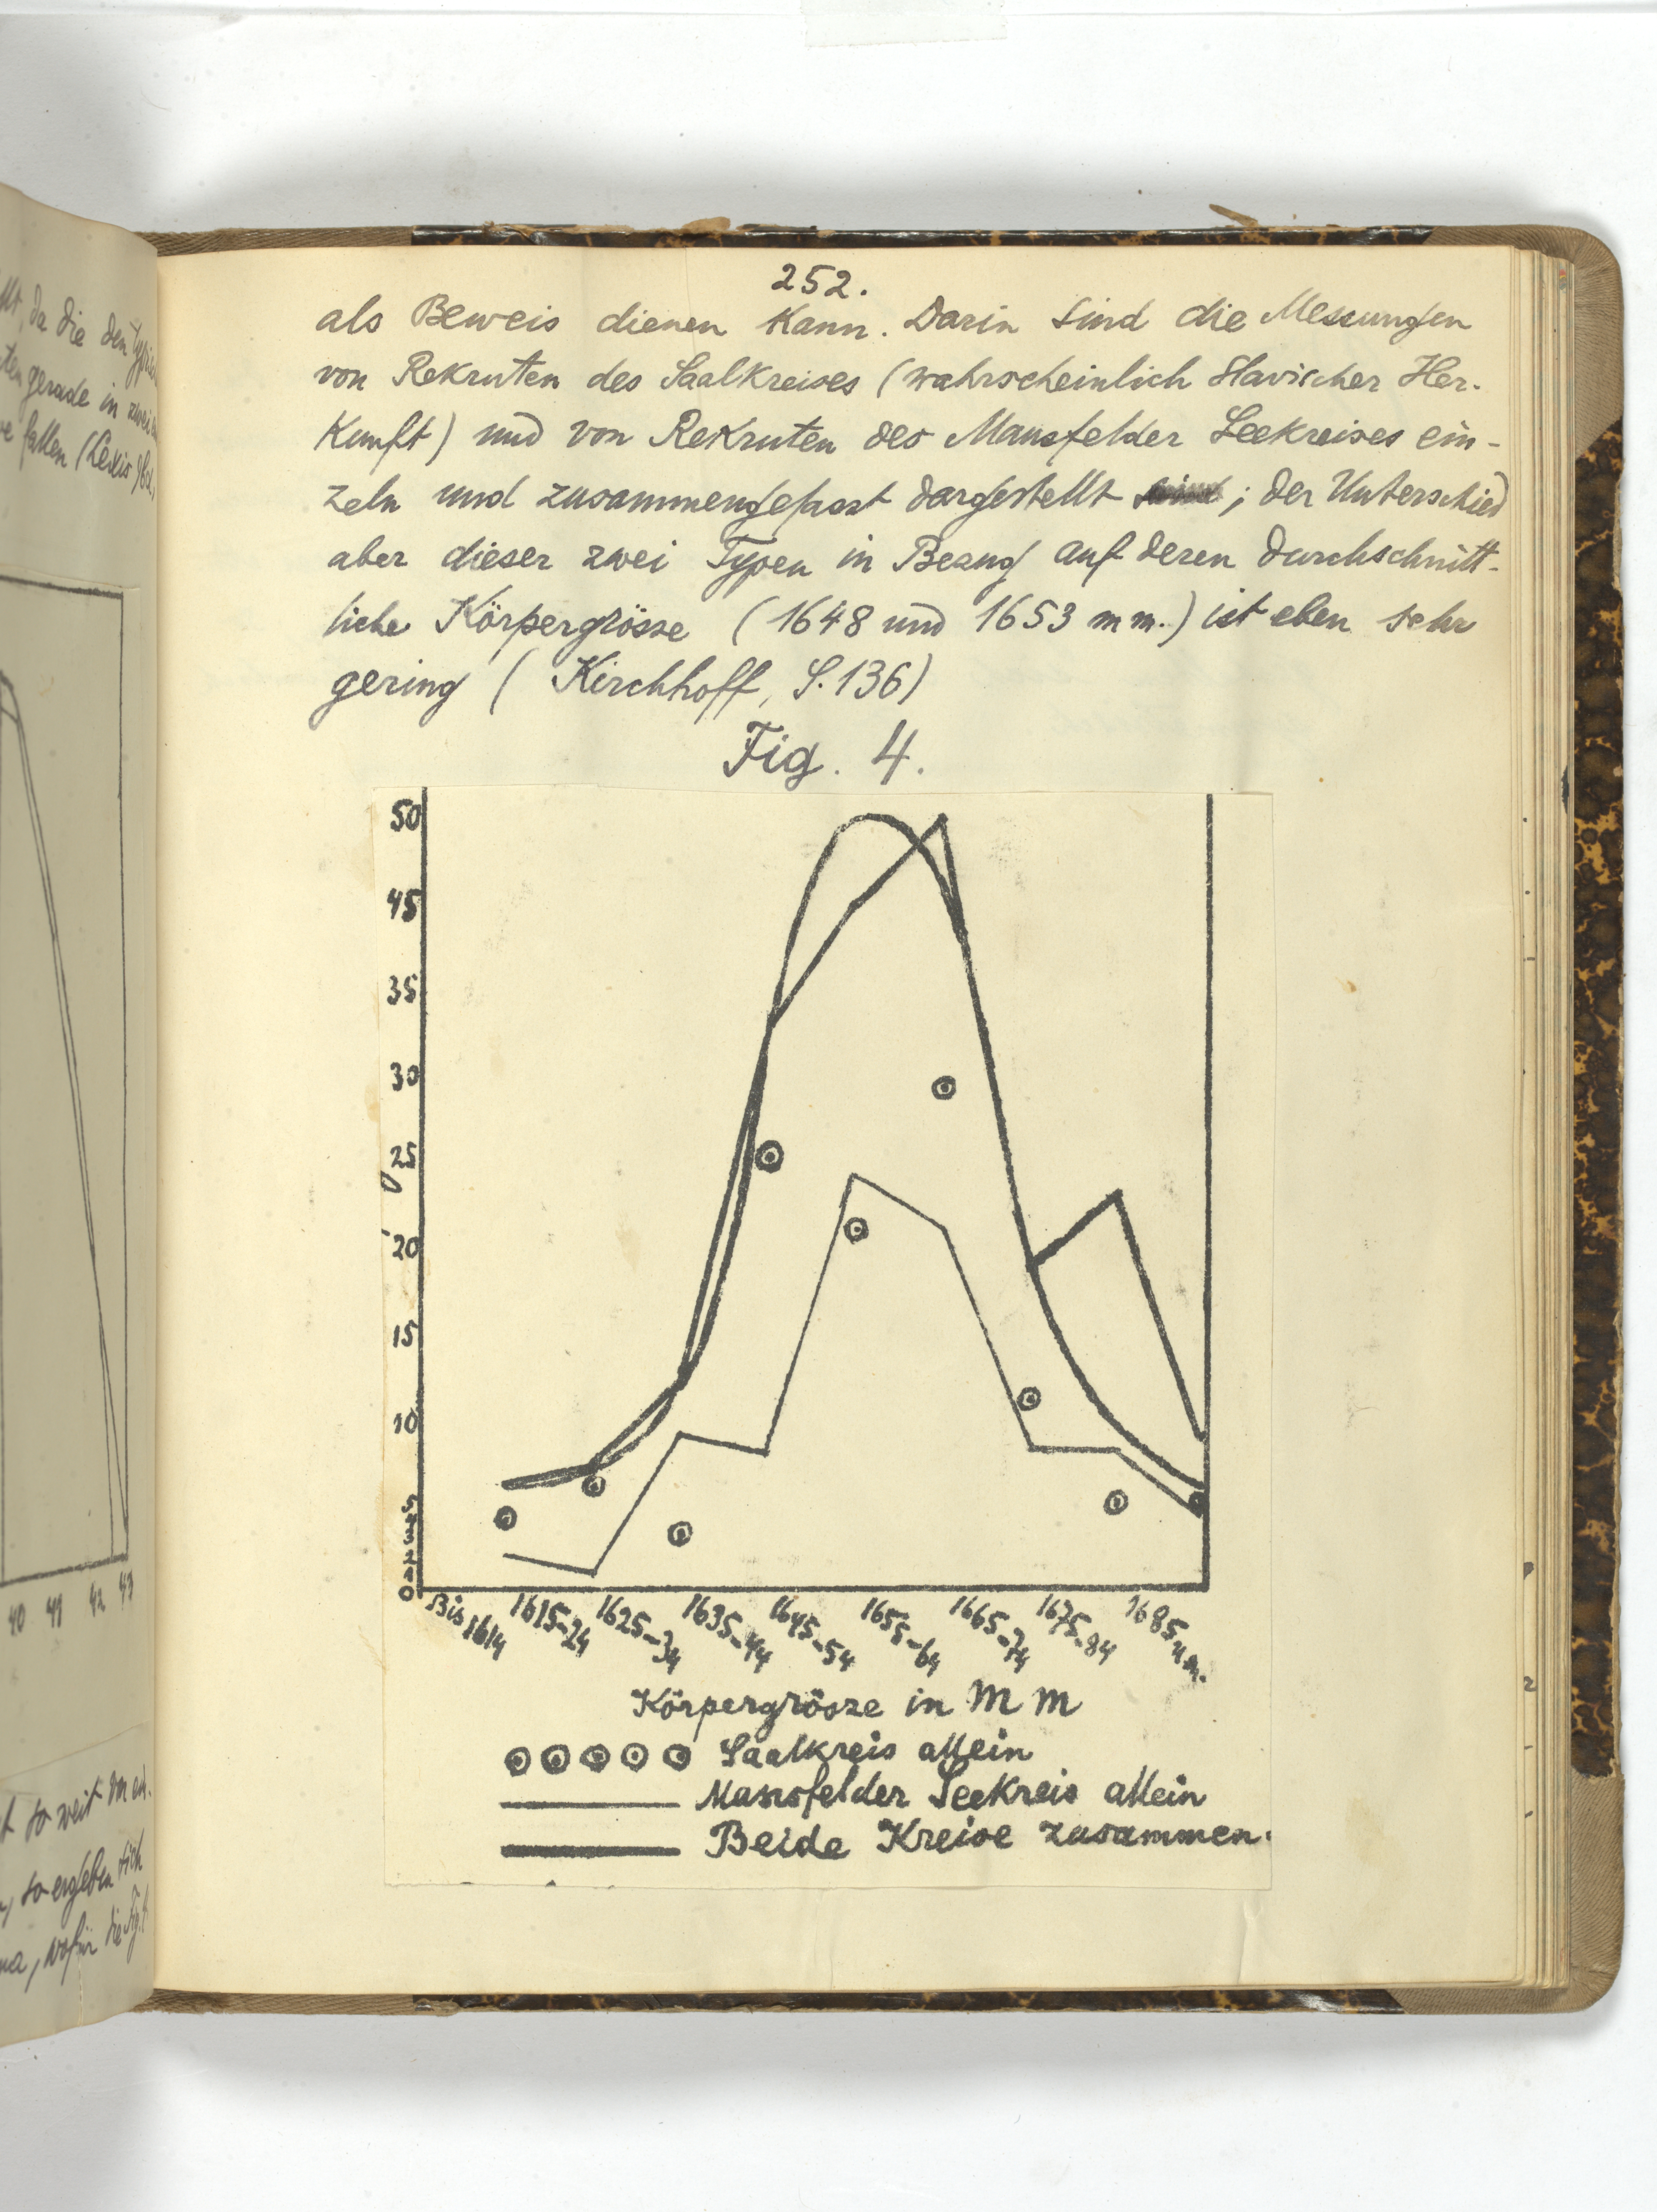 252.
als Beweis dienen kann. Darin sind die Messungen
von Rekruten des Saalkreises (wahrscheinlich slavischer Her-
kunft) und von Rekruten des Mansfelder Seekreises ein-
zeln und zusammengefasst dargestellt ; der Unterschied
aber dieser zwei Typen in Bezug auf deren durchschnitt-
liche Körpergrösse (1648 und 1653 mm.) ist eben sehr
gering (Kirchhoff, S. 136)
Fig. 4.
50
45
35
30
25
20
15
10
5
3
2
1
0
Bis 1614 1615-24 1625-34 1635-44 1645-54 1655-64 1665-74 1675-84 1685 u m.
Körpergrösze in MM
Saalkreis allein
Mansfelder Seekreis allein
Beide Kreise zusammen.
da die den
gerade in zwei
fallen (Lexis
40 41 42 43
so weit
so ergeben sich
wofür die Fig.